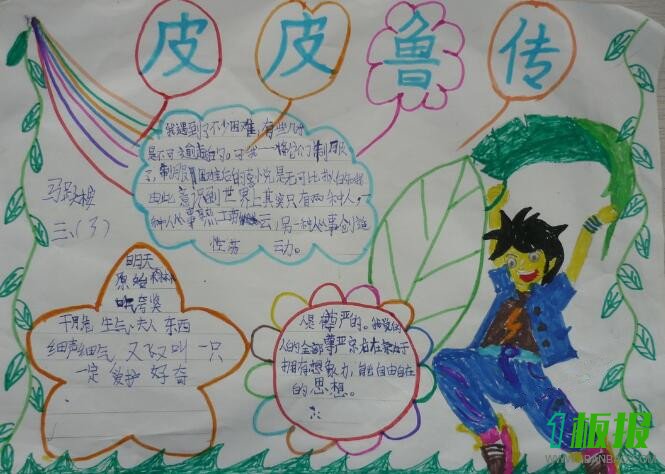 皮皮鲁传
我遇到了不少困难,有些几乎
是不可逾越的。可我一一将它们制服
了,制服困难后的喜悦是无可比拟的
由此意识到世界上其实只有两种人,
一种人从事熟工,另一种人从事创造
性劳动。
三、(3)
明天
原始森林
吼夸奖
干月危 生气 夫人 东西
细声细气 又叹叫一只
一定 爱护 好奇
人是尊严的。
人的全部尊严就在于
拥有想象力,自由自在
的思想。
1板报